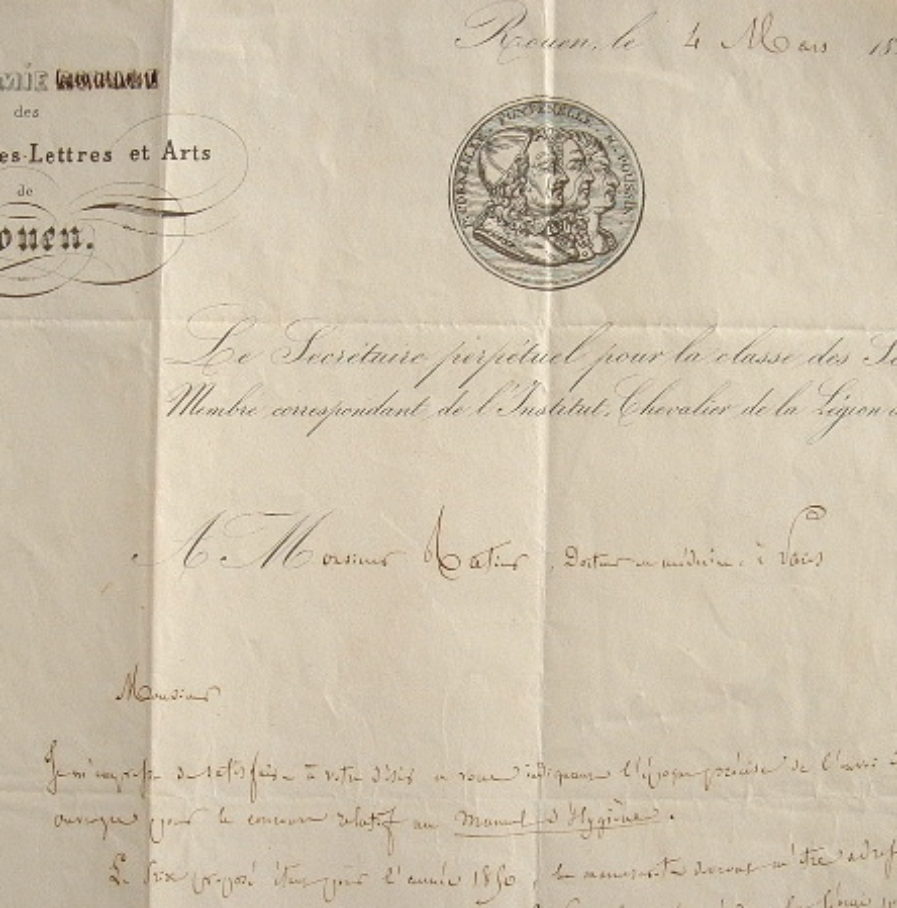 Rouen, le 4 Mars 18
MIE
des
es-Lettres et Arts
de
ouen.
P. CORNEILLE. FONTENELLE. N. POUSSIN
Le Secrétaire perpétuel pour la classe des
Membre correspondant de l'Institut, Chevalier de la Légion
A Monsieur Ratier, Docteur en médecine, à Paris
Monsieur
Je m'empresse de satisfaire à votre désir en vous indiquant l'époque précise de l'envoi
ouvrages pour le concours relatif au Manuel d'Hygiène.
Le Prix proposé étant pour l'année 1850, les manuscrits devront m'être